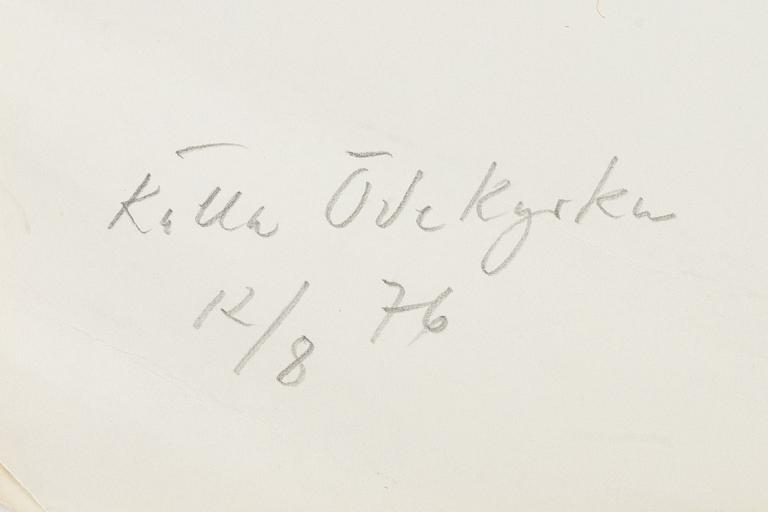 Källa Ödekyrka
12/8 76